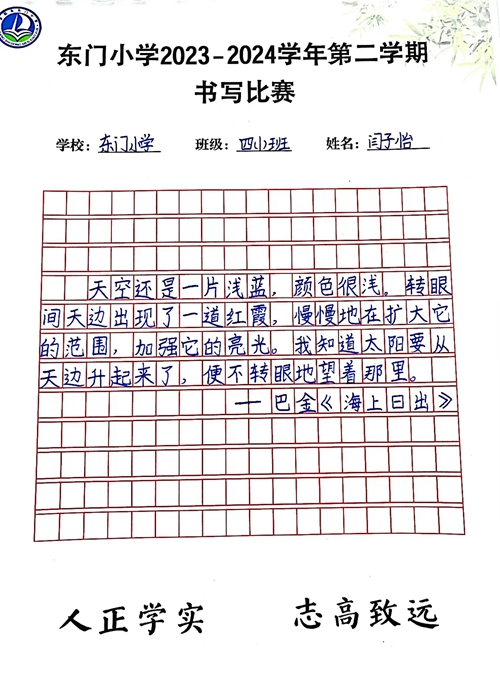 东门小学2023-2024学年第二学期
书写比赛
学校：东门小学 班级：四(1)班 姓名：闫子怡
天空还是一片浅蓝，颜色很浅。转眼
间天边出现了一道红霞，慢慢地在扩大它
的范围，加强它的亮光。我知道太阳要从
天边升起来了，便不转眼地望着那里。
——巴金《海上日出》
人正学实 志高致远